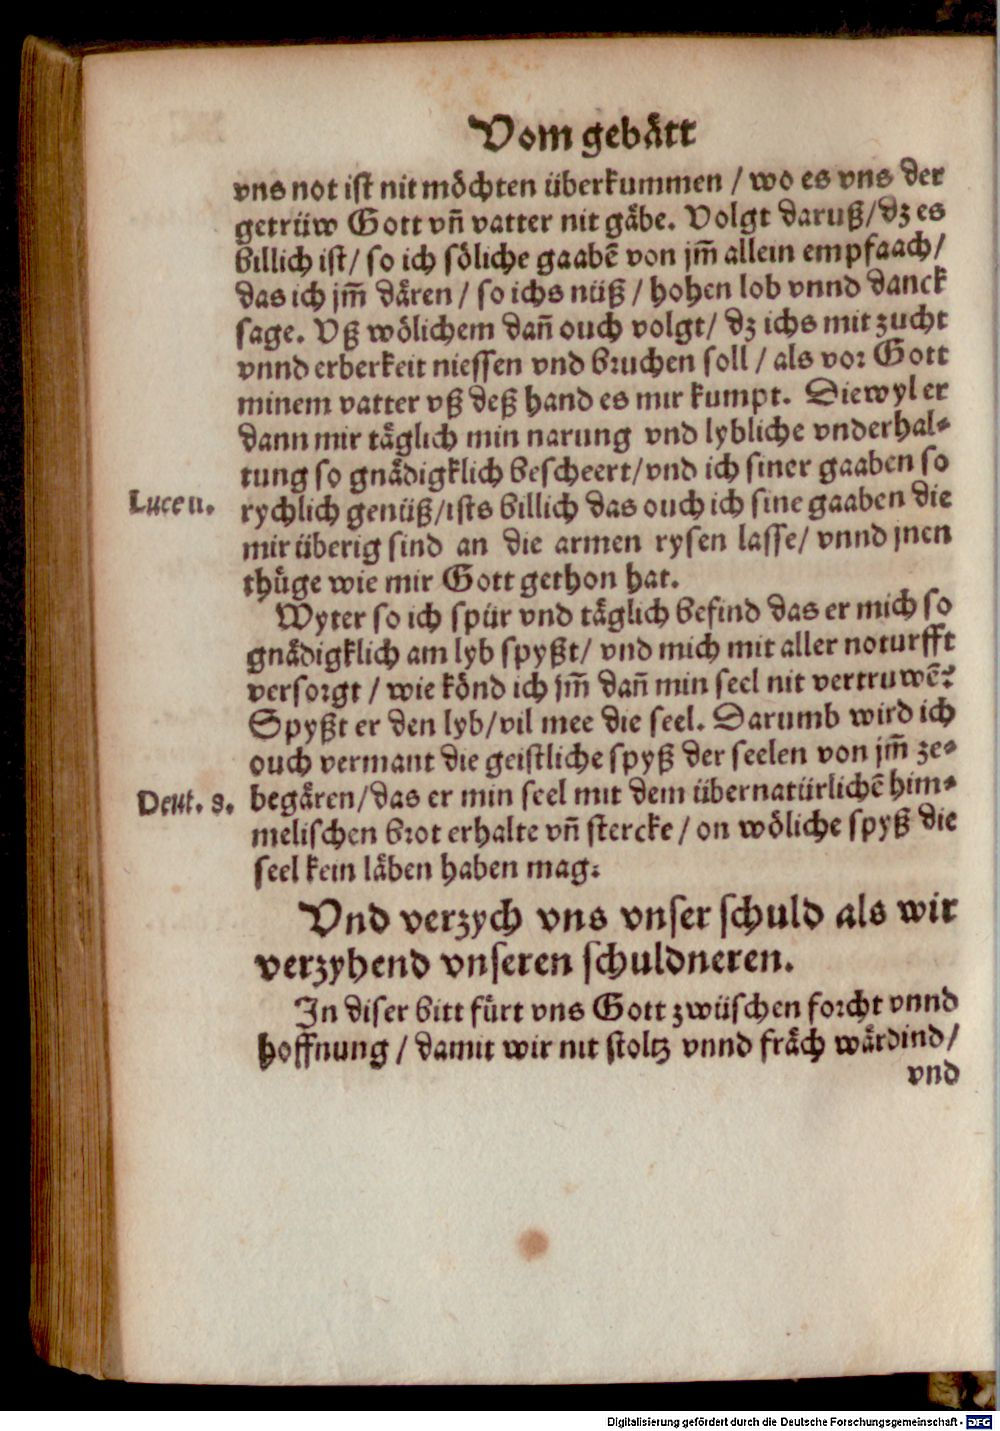 Vom gebätt
vns not ist nit möchten überkummen / wo es vns der
getrüw Gott vñ vatter nit gäbe. Volgt daruß/ dz es
billich ist/ so ich söliche gaabē von jm̄ allein empfaach/
das ich jm̄ dären / so ichs nüß / hohen lob vnnd danck
sage. Vß wölichem dañ ouch volgt/ dz ichs mit zucht
vnnd erberkeit niessen vnd bruchen soll / als vor Gott
minem vatter vß deß hand es mir kumpt. Diewyl er
dann mir täglich min narung vnd lybliche vnderhal-
tung so gnädigklich bescheert/ vnd ich siner gaaben so
Luce 11.
rychlich genüß/ ists billich das ouch ich sine gaaben die
mir überig sind an die armen rysen lasse/ vnnd jnen
thüge wie mir Gott gethon hat.
Wyter so ich spür vnd täglich befind das er mich so
gnädigklich am lyb spyßt/ vnd mich mit aller noturfft
versorgt / wie könd ich jm̄ dañ min seel nit vertruwē?
Spyßt er den lyb/ vil mee die seel. Darumb wird ich
ouch vermant die geistliche spyß der seelen von jm̄ ze-
Deut. 8.
begären/ das er min seel mit dem übernatürlichē him-
melischen brot erhalte vñ stercke / on wöliche spyß die
seel kein läben haben mag.
Vnd verzych vns vnser schuld als wir
verzyhend vnseren schuldneren.
In diser bitt fürt vns Gott zwüschen forcht vnnd
hoffnung / damit wir nit stoltz vnnd fräch wärdind/
vnd
Digitalisierung gefördert durch die Deutsche Forschungsgemeinschaft - DFG